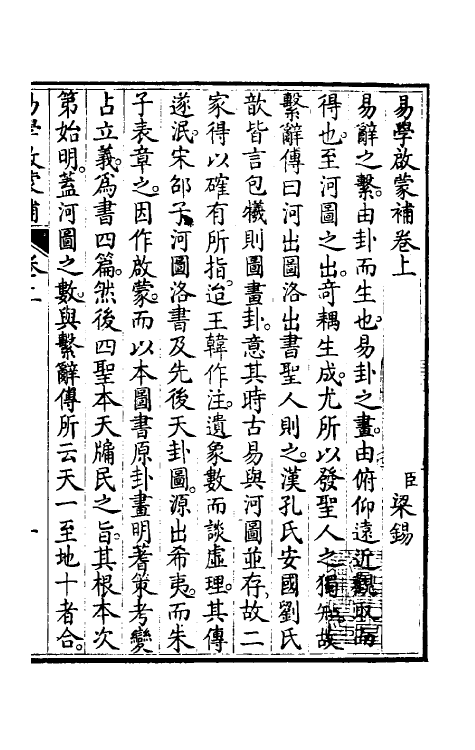 易學啟蒙補卷上
臣梁錫
易辭之繫由卦而生也易卦之畫由俯仰遠近觀取而
得也至河圖之出奇耦生成尤所以發聖人之獨知故
繫辭傳曰河出圖洛出書聖人則之漢孔氏安國劉氏
歆皆言包犧則圖畫卦意其時古易與河圖並存故二
家得以確有所指迨王韓作注遺象數而談虛理其傳
遂泯宋邵子河圖洛書及先後天卦圖源出希夷而朱
子表章之因作啟蒙而以本圖書原卦畫明蓍策考變
占立義為書四篇然後四聖本天牖民之旨其根本次
第始明蓋河圖之數與繫辭傳所云天一至地十者合
易學啟蒙補
卷上
一